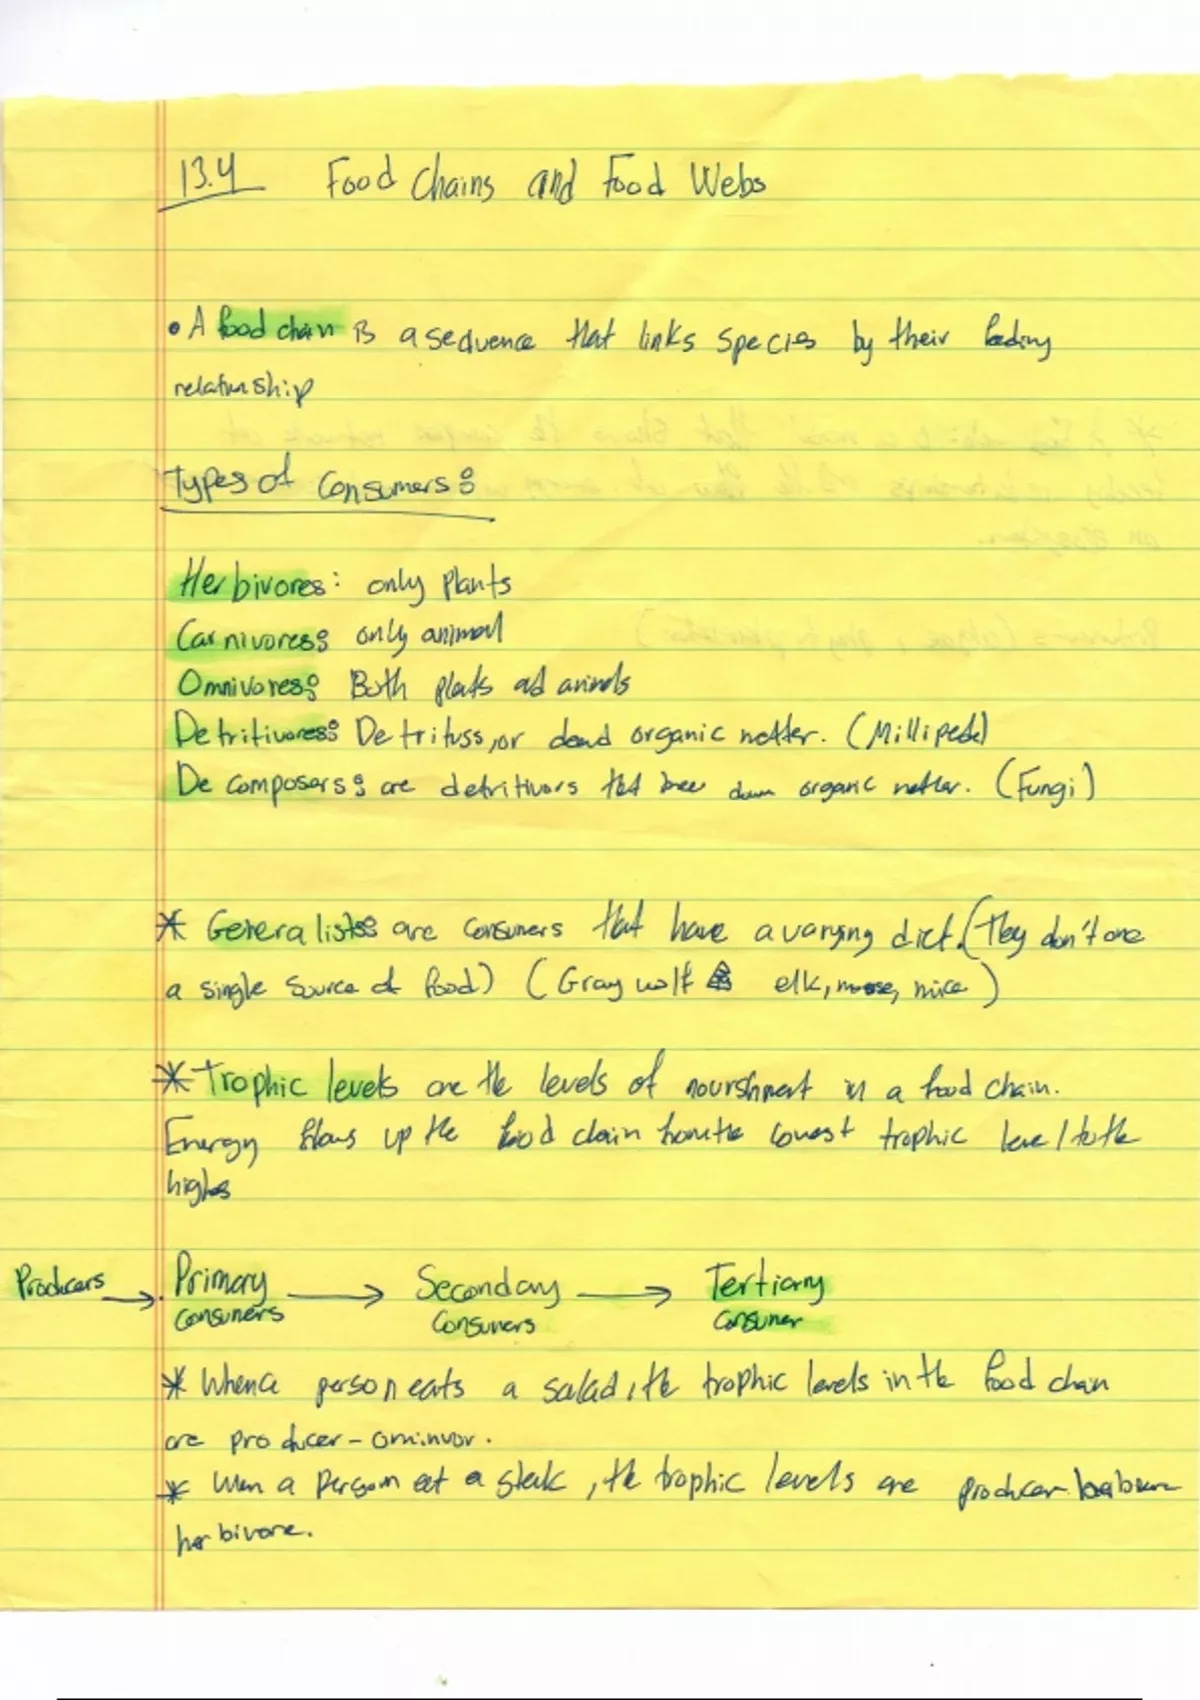 13.4 Food Chains and Food Webs
• A food chain is a sequence that links species by their feeding
relationship
Types of Consumers:
Herbivores: only Plants
Carnivores: only animal
Omnivores: Both plants ad animals
Detritivores: Detrituss, or dead organic matter. (Millipede)
Decomposers: are detritivors that down organic matter. (Fungi)
* Generalists are consumers that have a varying diet. (They don't
a single source of food) (Gray wolf elk, moose, mice)
* Trophic levels are the levels of nourshment in a food chain.
Energy flows up the food chain from the lowest trophic level to the
highes
Producers → Primary → Secondary → Tertiary
Consumers Consumers Consumer
* When a person eats a salad, the trophic levels in the food chain
are producer - ominvor.
* When a Person eat a steak, the trophic levels are producer
herbivore.